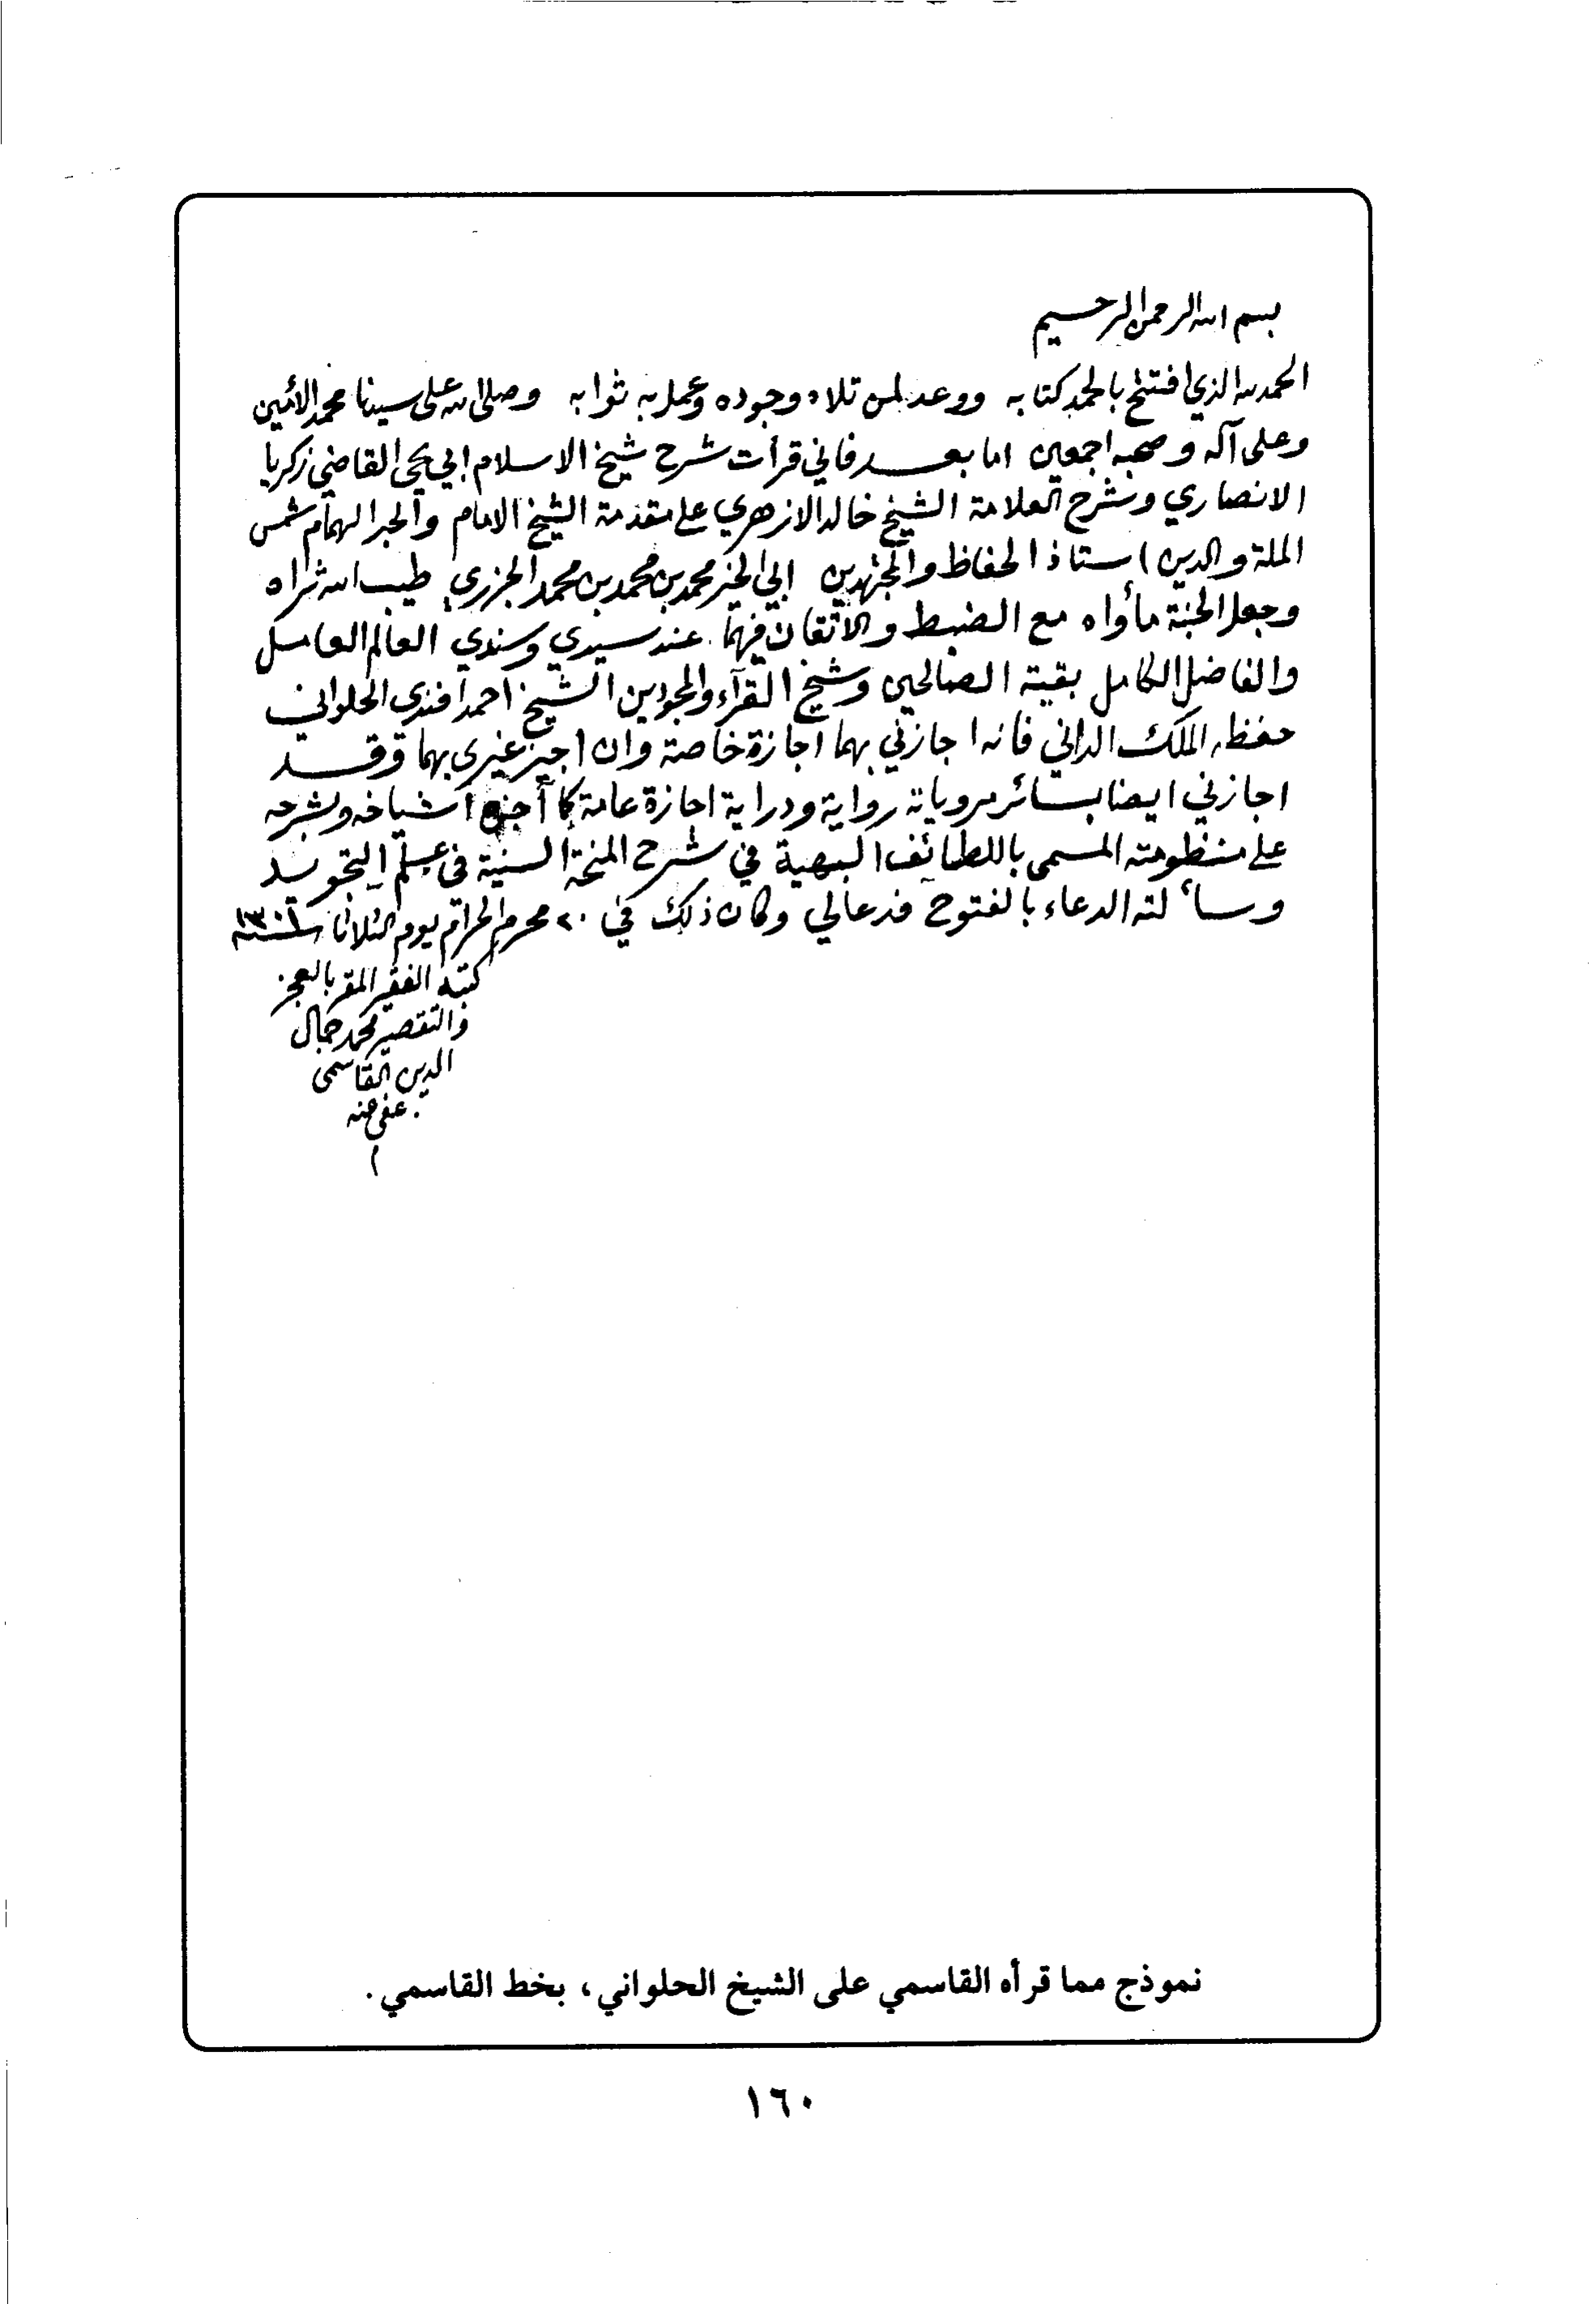 بسم الله الرحمن الرحيم
الحمد لله الذي افتتح بالحمد كتابه ووعد لمن تلاه وجوده وعمل به ثوابه وصلى الله على سيدنا محمد الأمين
وعلى آله وصحبه اجمعين اما بعد فاني قرأت شرح شيخ الاسلام ابي يحيى القاضي زكريا
الانصاري وشرح العلامة الشيخ خالد الازهري على مقدمة الشيخ الامام والحبر الهمام شمس
الملة والدين استاذ الحفاظ والمجتهدين ابي الخير محمد بن محمد بن محمد الجزري طيب الله ثراه
وجعل الجنة مأواه مع الضبط والاتقان فيهما عند سيدي وسندي العالم العامل
والفاضل الكامل بقية الصالحين وشيخ القرآء والمجودين الشيخ احمد افندي الحلواني
حفظه الملك الداني فانه اجازني بهما اجازة خاصة وان اجيز غيري بهما وقد
اجازني ايضا بسائر مروياته رواية ودراية اجازة عامة كما أجازه اشياخه وبشرحه
على منظومته المسمى باللطائف البهية في شرح المنحة السنية في علم التجويد
وسألته الدعاء بالفتوح فدعا لي وكان ذلك في ٢٠ محرم الحرام يوم الثلاثا سنة
كتبه الفقير المقر بالعجز
والتقصير محمد جمال
الدين القاسمي
عفي عنه
نموذج مما قرأه القاسمي على الشيخ الحلواني، بخط القاسمي.
١٦٠